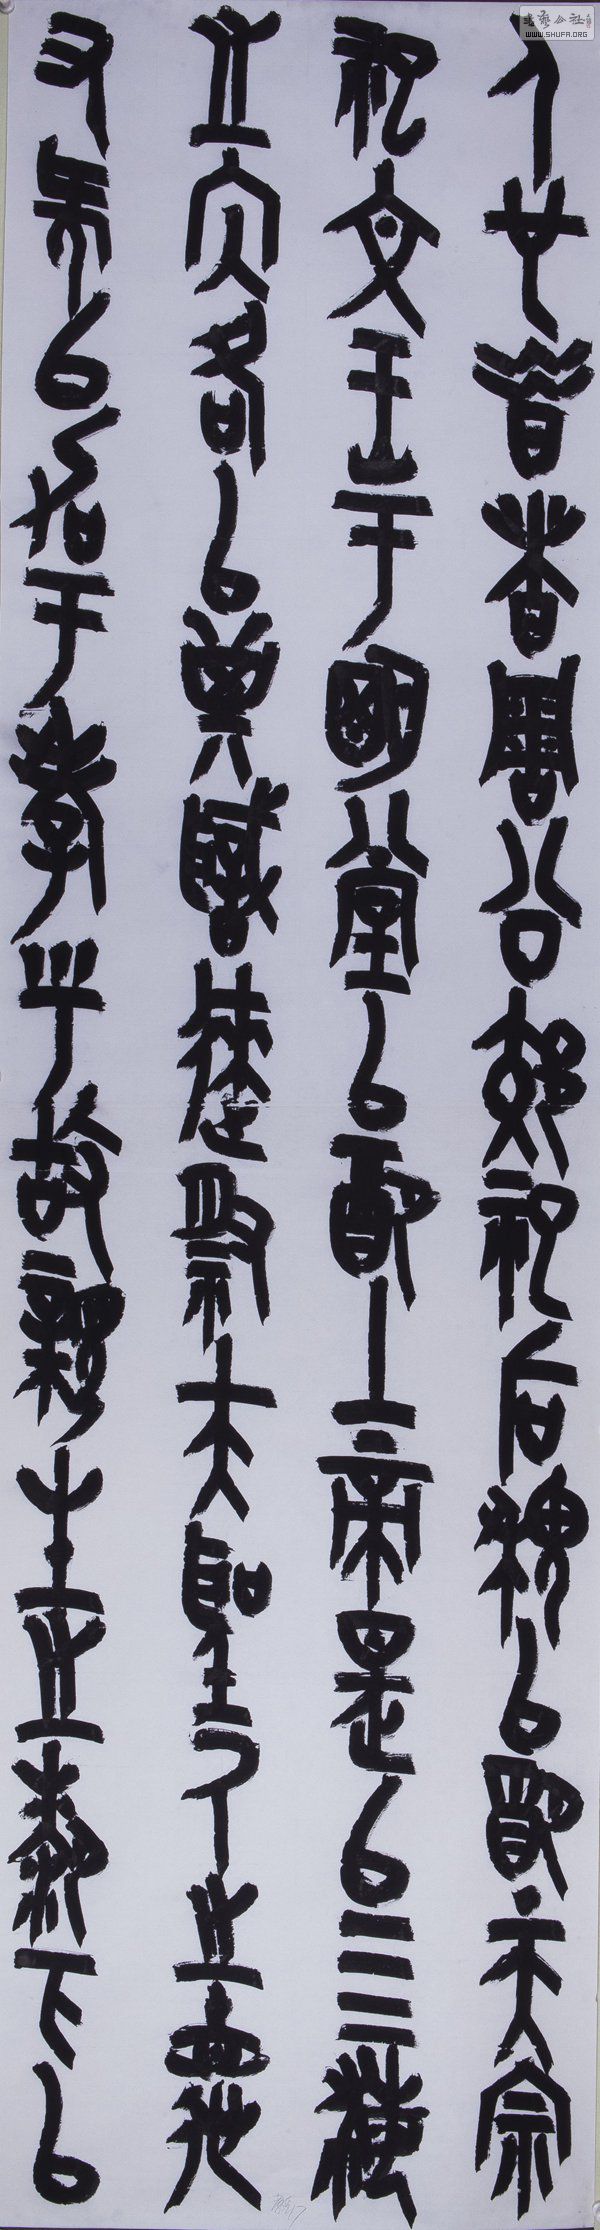 人也昔者周公郊祀后稷以配天宗
祀文王于明堂以配上帝是以四海
之内各以其職來祭夫聖人之德
又何以加于孝乎故親生之膝下以
書藝公社
WWW.SHUFA.ORG